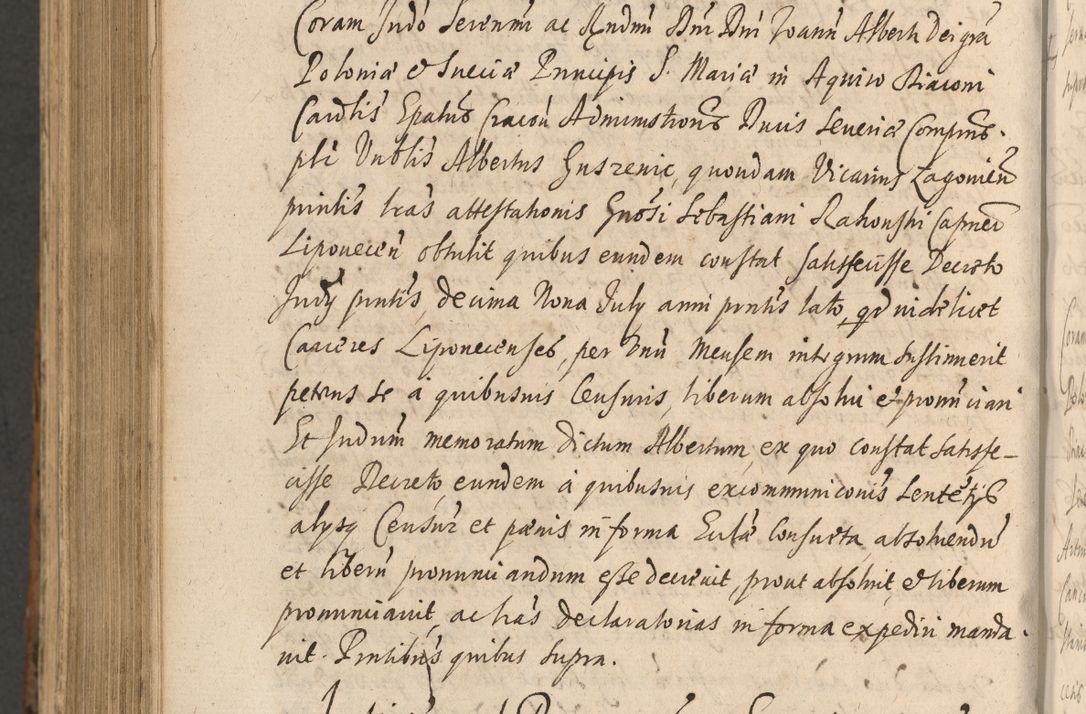 Coram Judō Serenmi ac Rndmi Dni Dni Joann Alberti Dei grā
Poloniæ & Sueciæ Principis S. Mariæ in Aquiro Diaconi
Cardlis Epatus Cracoū Administroris Ducis Severiæ Comprns
pli Vnblis Albertus Guszenic, quondam Vicarius Zagoniēn
printis lrās attestationis Gnōsi Sebastiani Rahouski Capnei
Lipouecēn obtulit quibus eundem constat satisfecisse Decreto
Judij prntis decima Nona July anni prntis lato, qd videlicet
Carceres Lipouecenses, per vnū Mensem integrum sustinuerit
petens se à quibusuis Censuris, liberum absolui et pronūciari
Et Judum memoratum dictum Albertum, ex quo constat satisfe-
cisse Decreto, eundem à quibusuis excommuniconis Sentētijs
alysq Censur et pœnis in forma Eccla Consueta absoluendū
et liberū pronunciandum esse decreuit, prout absoluit, & liberum
pronunciauit, ac lras declaratorias in forma expediri manda
uit. Prntibus quibus supra.